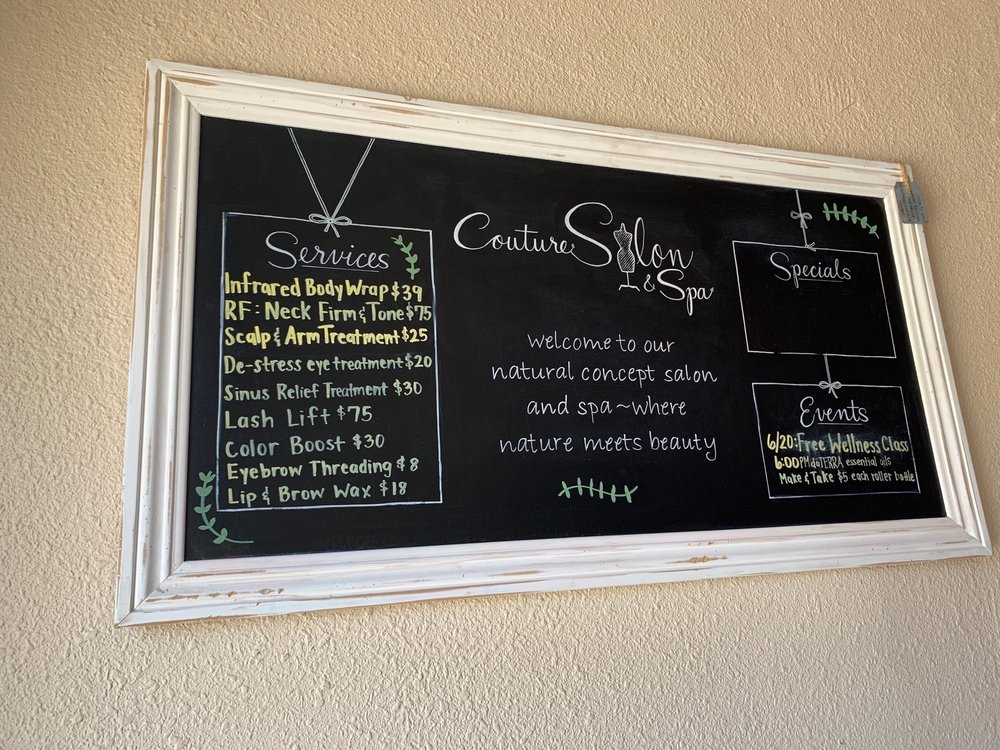 Services
Infrared Body Wrap $39
RF: Neck Firm & Tone $75
Scalp & Arm Treatment $25
De-stress eye treatment $20
Sinus Relief Treatment $30
Lash Lift $75
Color Boost $30
Eyebrow Threading $8
Lip & Brow Wax $18
Couture Salon
& Spa
welcome to our
natural concept salon
and spa~where
nature meets beauty
Specials
Events
6/20: Free Wellness Class
6:00PM doTERRA essential oils
Make & Take $5 each roller bottle